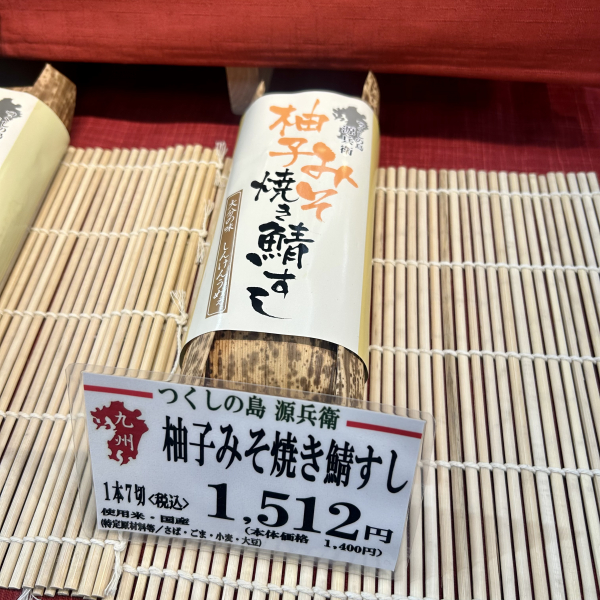 柚子みそ
焼き鯖すし
大分の味 しんけんうめえ
つくしの島 源兵衛
九州
柚子みそ焼き鯖すし
1本7切<税込>
1,512円
使用米・国産
(本体価格 1,400円)
(特定原材料等/さば・ごま・小麦・大豆)